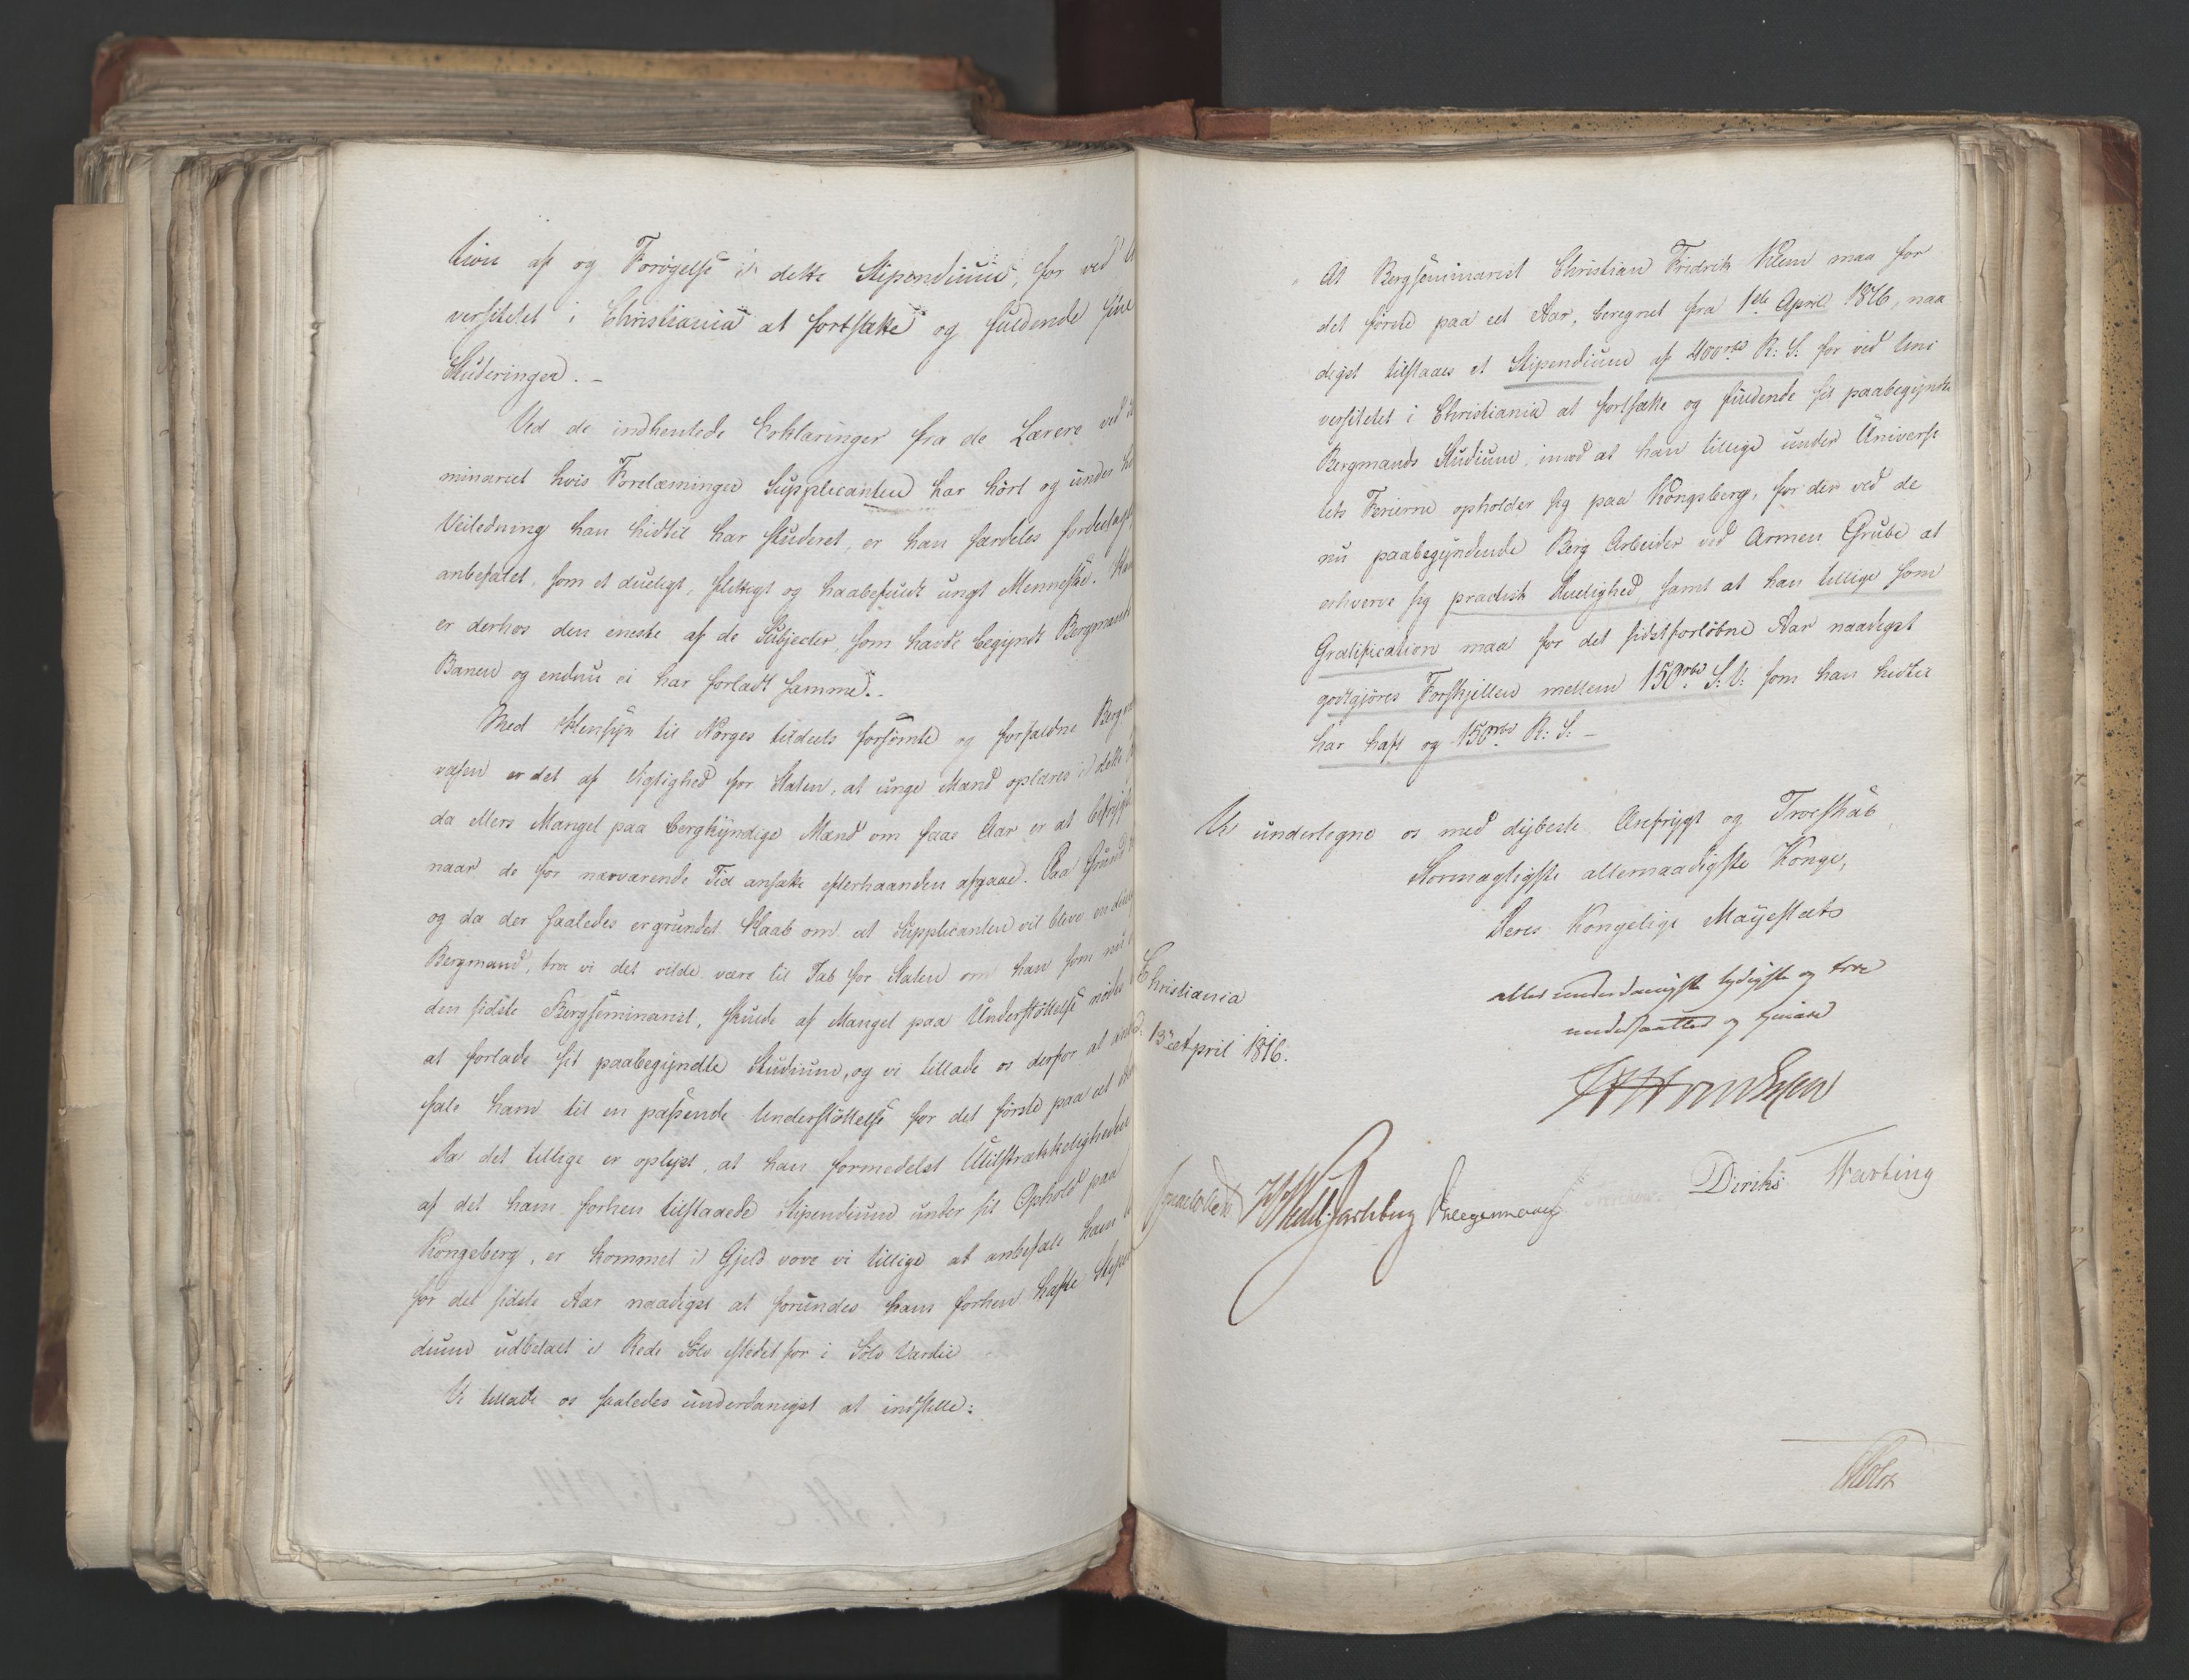 tion af og Forøgelse i dette Stipendium, for ved U
versitetet i Christiania at fortsætte og fuldende sine
Studeringer. -
Ved de indhentede Erklæringer fra de Lærere ved
minariet hvis Forelæsninger Supplicanten har hört og under
Veiledning han hidtil har studeret, er han særdeles fordeelagt
anbefalet, som et dueligt, flittigt og haabefuldt ungt Menneske. Han
er derhos den eneste af de Subjecter, som havde begyndt Bergmands
Banen og endnu ei har forladt samme. -
Med Hensyn til Norges tildeels forsömte og forfaldne Berg
væsen er det af Vigtighed for Staten, at unge Mænd oplæres i dette
da ellers Mangel paa bergkyndige Mænd om faae Aar er at befrygte
naar de for nærværende Tid ansatte efterhaanden afgaae. Paa Grund
og da der saaledes er grundet Haab om at Supplicanten vil blive en
Bergmand, troe vi det vilde være til Tab for Staten om han som nu
den sidste Bergseminarist, skulde af Mangel paa Understöttelse nödes
at forlade sit paabegyndte Studium, og vi tillade os derfor at anbe
fale ham til en passende Understöttelse for det förste paa et Aar
Da det tillige er oplyst, at han formedelst Utilstrækkeligheden
af det ham forhen tilstaaede Stipendium under sit Ophold paa
Kongsberg, er kommet i Gjeld vove vi tillige at anbefale ham
for det sidste Aar naadigst at forundes hans forhen hafte Stipen
dium udbetalt i Rede Sölv istedetfor i Sölv Værdie
Vi tillade os saaledes underdanigst at indstille:
At Bergseminarist Christian Fridrik Klem maa for
det förste paa eet Aar, beregnet fra 1ste April 1816, naa
digst tilstaaes et Stipendium af 400 rbd R: S: for ved Uni
versitetet i Christiania at fortsætte og fuldende sit paabegyndte
Bergmands Studium, imod at han tillige under Universite
tets Ferierne opholder sig paa Kongsberg, for der ved de
nu paabegyndende Berg Arbeider ved Armen Grube at
erhverve sig practisk Duelighed samt at han tillige som
Gratification maa for det sidstforlöbne Aar naadigst
godtgjöres Forskjellen mellem 150 rbd S: V: som han hidtil
har haft og 150 rbd R: S: -
Vi undertegne os med dybeste Ærefrygt og Troeskab
Stormægtigste allernaadigste Konge,
Deres Kongelige Mayestæts
allerunderdanigste lydigste og troe
undersaatter og tjenere
Christiania
d. 13de April 1816.
Diriks Hartvig
Holst